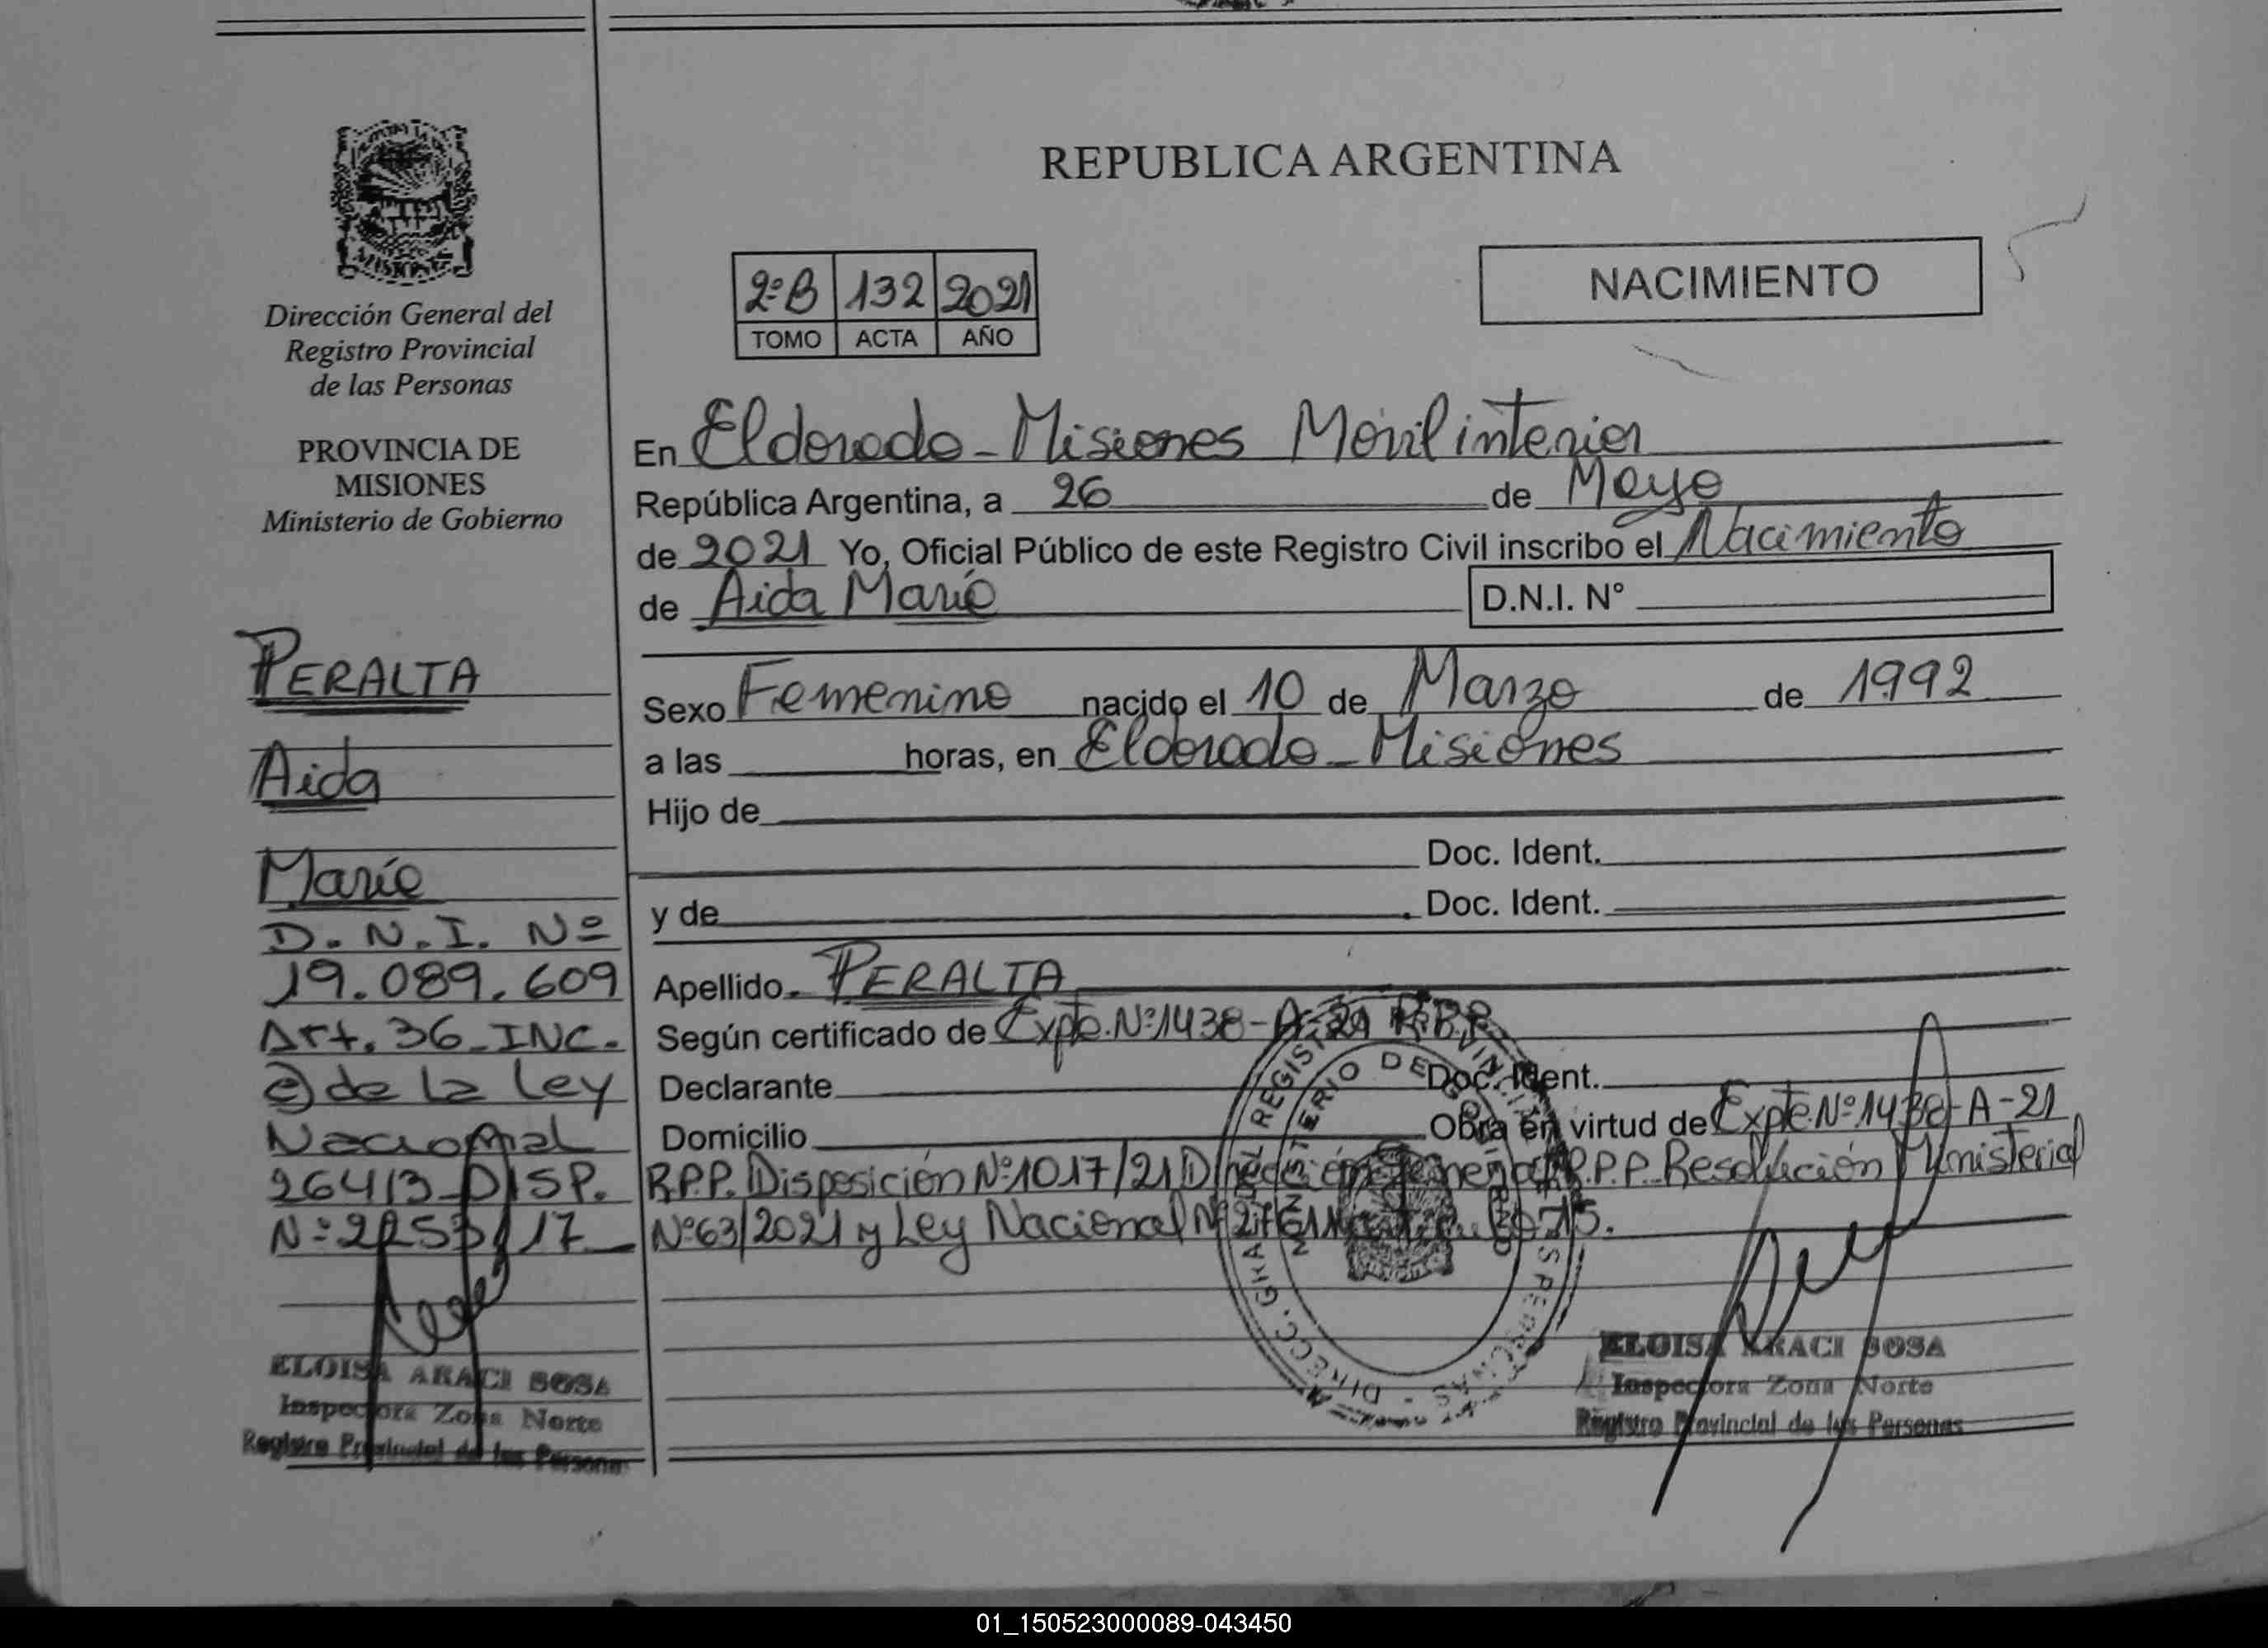 REPUBLICA ARGENTINA
2º B 132 2021
TOMO ACTA AÑO
NACIMIENTO
Dirección General del
Registro Provincial
de las Personas
PROVINCIA DE
MISIONES
Ministerio de Gobierno
PERALTA
Aida
María
D.N.I. Nº
19.089.609
Art. 36_INC.
c) de la Ley
Nacional
26413_DISP.
Nº 17_
ELOISA ARACI SOSA
Inspectora Zona Norte
Registro Provincial de las Personas
En Eldorado_Misiones Móvil interior
República Argentina, a 26 de Mayo
de 2021 Yo, Oficial Público de este Registro Civil inscribo el Nacimiento
de Aida María D.N.I. Nº
Sexo Femenino nacido el 10 de Marzo de 1992
a las horas, en Eldorado_Misiones
Hijo de
Doc. Ident.
y de Doc. Ident.
Apellido PERALTA
Según certificado de Expte. Nº 1438-A-21 R.P.P.
Declarante Doc. Ident.
Domicilio Obra en virtud de Expte. Nº 1438-A-21
R.P.P. Disposición Nº 1017/21 Dirección General R.P.P. Resolución Ministerial
Nº 63/2021 y Ley Nacional Nº
MINISTERIO DE GOBIERNO
ELOISA ARACI SOSA
Inspectora Zona Norte
Registro Provincial de las Personas
01_150523000089-043450